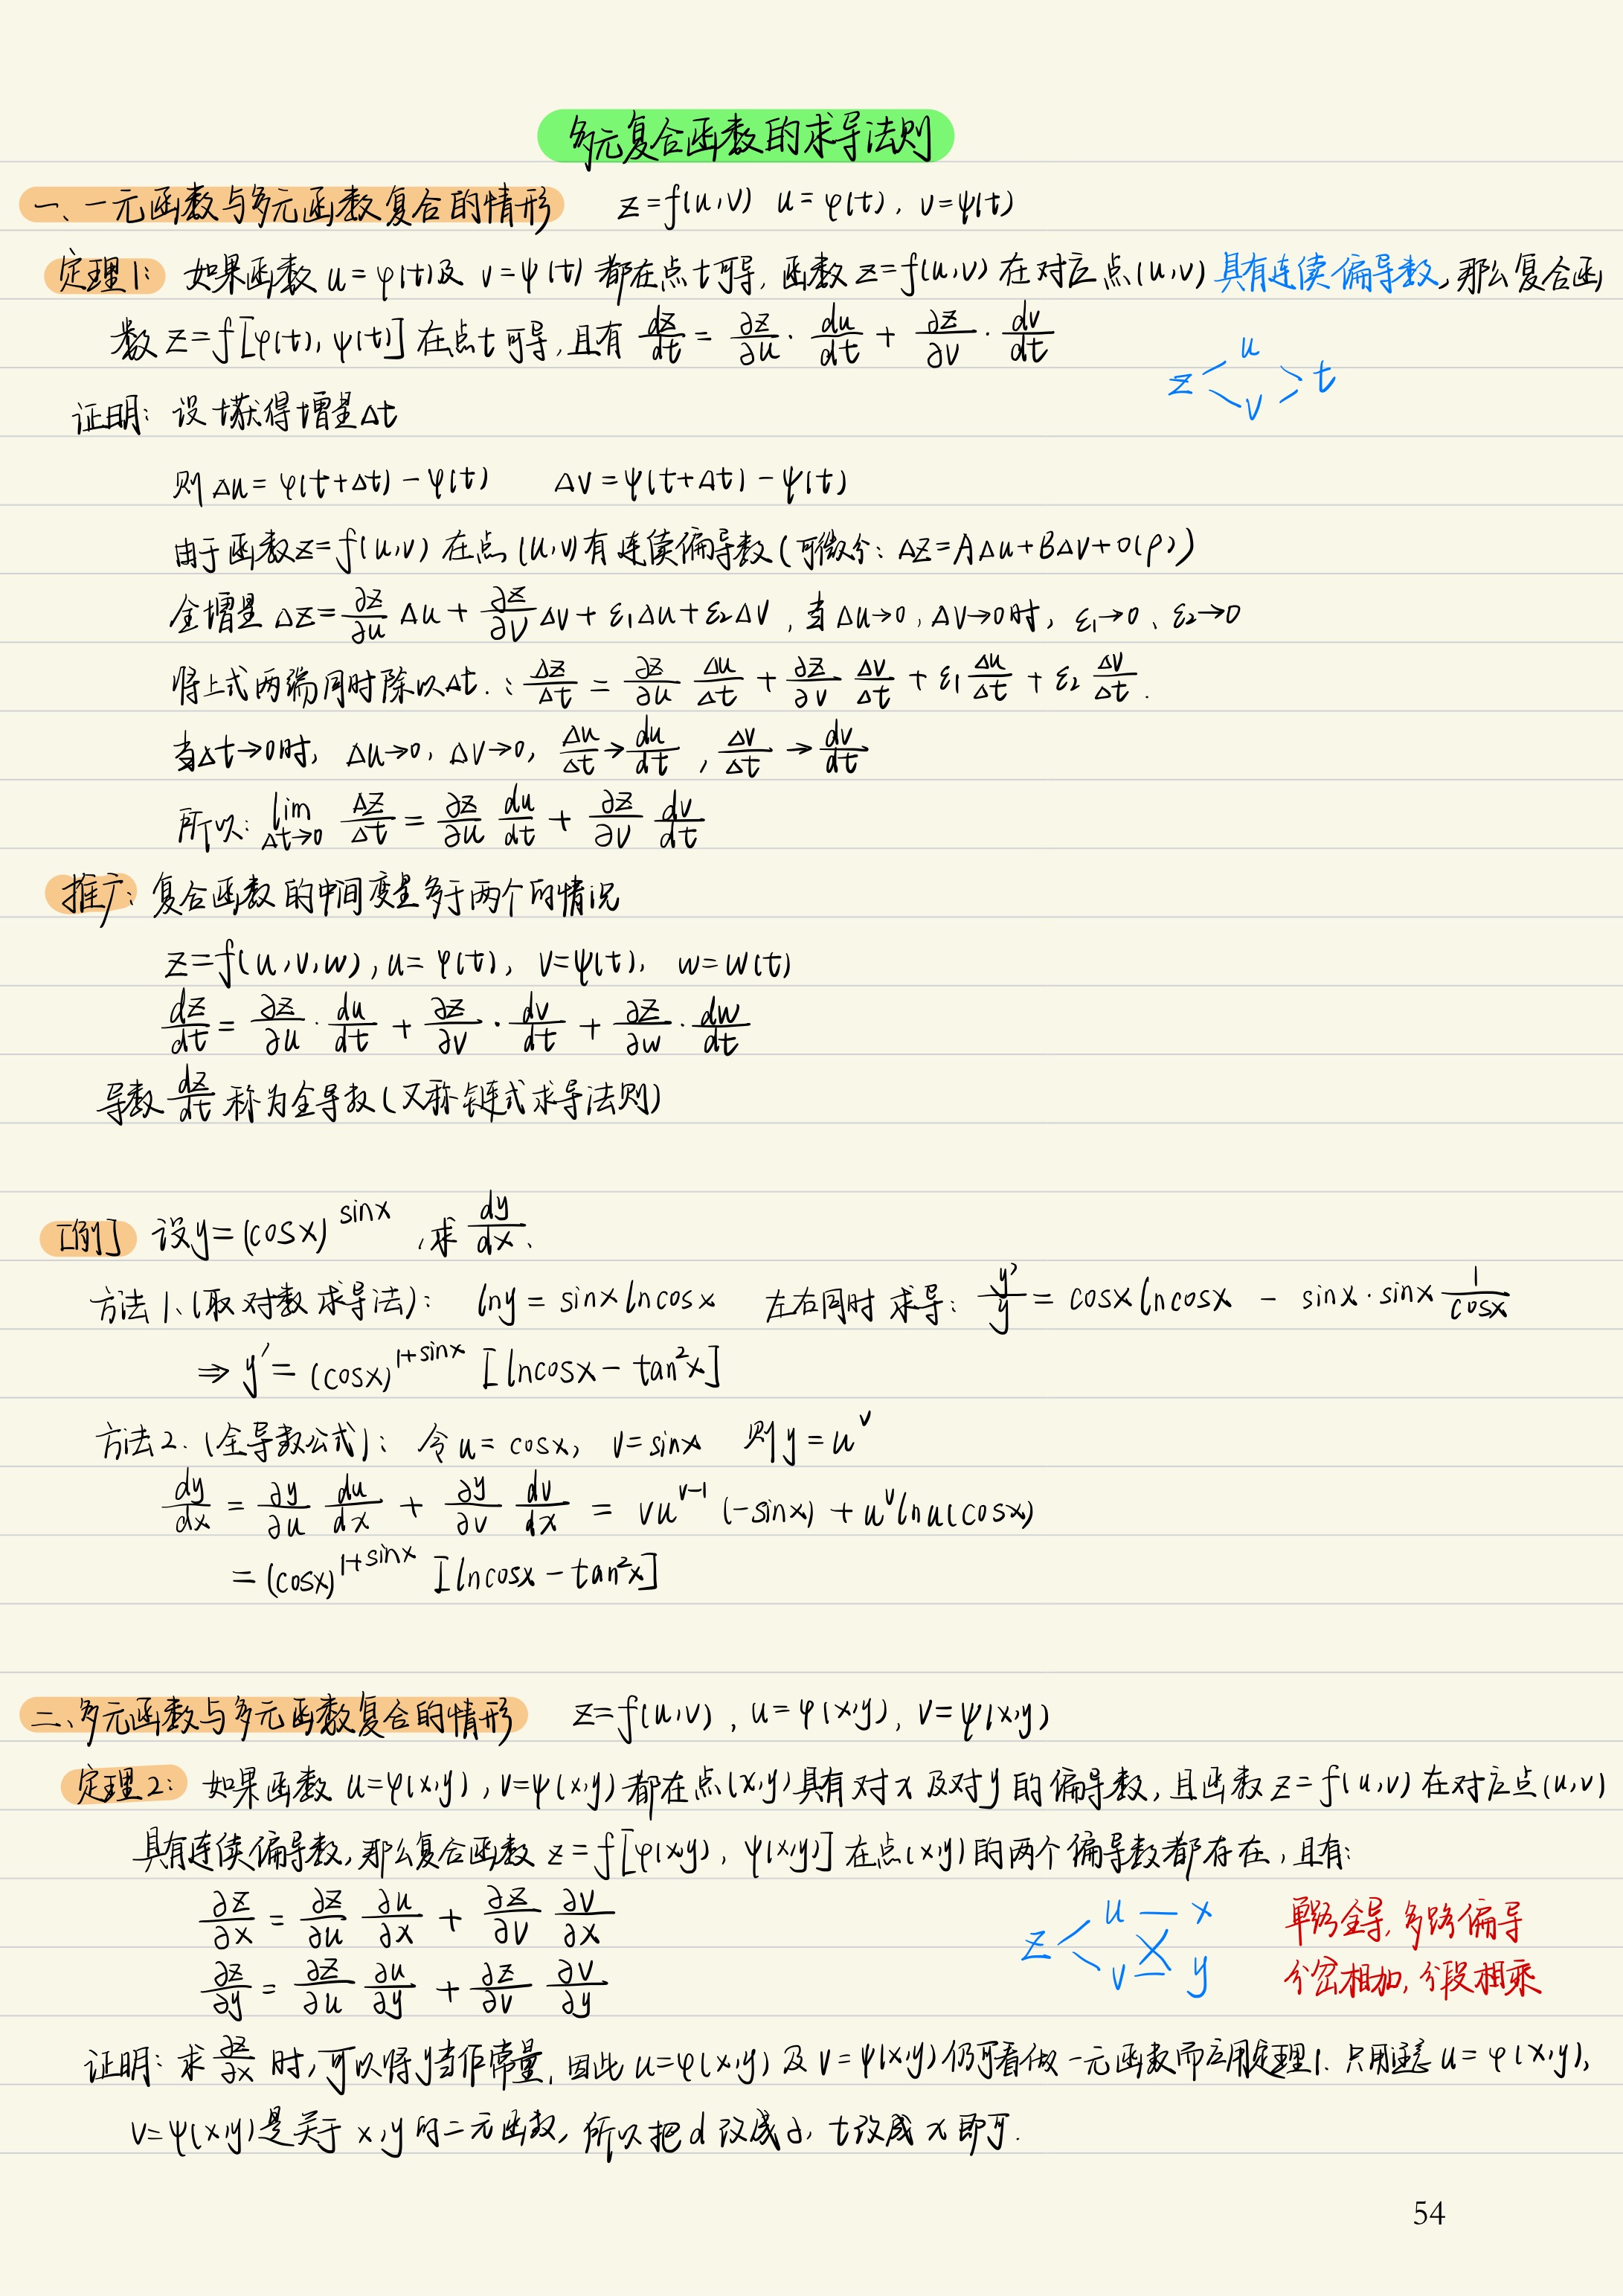 多元复合函数的求导法则
一、一元函数与多元函数复合的情形 z=f(u,v) u=φ(t), v=ψ(t)
定理1: 如果函数 u=φ(t)及 v=ψ(t) 都在点t可导, 函数 z=f(u,v) 在对应点(u,v) 具有连续偏导数, 那么复合函
数 z=f[φ(t), ψ(t)] 在点t可导, 且有 dz/dt = ∂z/∂u · du/dt + ∂z/∂v · dv/dt
z < u v > t
证明: 设t获得增量Δt
则 Δu=φ(t+Δt)-φ(t) Δv=ψ(t+Δt)-ψ(t)
由于函数z=f(u,v) 在点(u,v)有连续偏导数(可微分: Δz=AΔu+BΔv+o(ρ))
全增量 Δz=∂z/∂u Δu + ∂z/∂v Δv + ε₁Δu+ε₂Δv, 当Δu→0, Δv→0时, ε₁→0、ε₂→0
将上式两端同时除以Δt.: Δz/Δt = ∂z/∂u Δu/Δt + ∂z/∂v Δv/Δt + ε₁ Δu/Δt + ε₂ Δv/Δt.
当Δt→0时, Δu→0, Δv→0, Δu/Δt→du/dt, Δv/Δt→dv/dt
所以: lim Δt→0 Δz/Δt = ∂z/∂u du/dt + ∂z/∂v dv/dt
推广: 复合函数的中间变量多于两个的情况
z=f(u,v,w), u=φ(t), v=ψ(t), w=w(t)
dz/dt = ∂z/∂u · du/dt + ∂z/∂v · dv/dt + ∂z/∂w · dw/dt
导数 dz/dt 称为全导数(又称链式求导法则)
[例] 设y=(cosx)^sinx, 求 dy/dx.
方法1、(取对数求导法): lny=sinxlncosx 左右同时求导: y'/y = cosxlncosx - sinx·sinx 1/cosx
⇒ y'=(cosx)^(1+sinx) [lncosx-tan²x]
方法2.(全导数公式): 令u=cosx, v=sinx 则y=u^v
dy/dx = ∂y/∂u du/dx + ∂y/∂v dv/dx = vu^(v-1) (-sinx) + u^v lnu(cosx)
=(cosx)^(1+sinx) [lncosx-tan²x]
二、多元函数与多元函数复合的情形 z=f(u,v), u=φ(x,y), v=ψ(x,y)
定理2: 如果函数 u=φ(x,y), v=ψ(x,y) 都在点(x,y)具有对x及对y的偏导数, 且函数 z=f(u,v) 在对应点(u,v)
具有连续偏导数, 那么复合函数 z=f[φ(x,y), ψ(x,y)] 在点(x,y)的两个偏导数都存在, 且有:
∂z/∂x = ∂z/∂u ∂u/∂x + ∂z/∂v ∂v/∂x
∂z/∂y = ∂z/∂u ∂u/∂y + ∂z/∂v ∂v/∂y
z < u x
v y
单路全导, 多路偏导
分岔相加, 分段相乘
证明: 求 ∂z/∂x 时, 可以将y当作常量, 因此 u=φ(x,y) 及 v=ψ(x,y)仍可看做一元函数而应用定理1. 只用注意 u=φ(x,y),
v=ψ(x,y)是关于 x,y 的二元函数, 所以把 d 改成∂, t改成 x 即可.
54